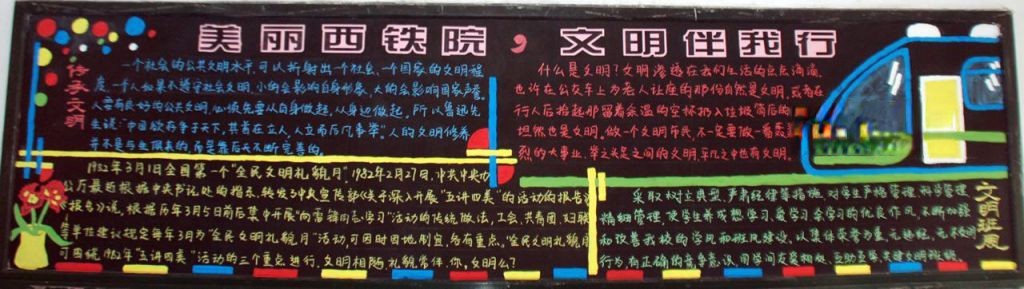 美丽西铁院，文明伴我行
传承文明
一个社会的公共文明水平,可以折射出一个社会、一个国家的文明程
度,一个人如果不遵守社会文明,小的会影响自身形象,大的会影响国家声誉。
人要有良好的公共文明,必须先要从自身做起,从身边做起。所以鲁迅先
生说:"中国欲存争于天下,其首在立人,人立而后凡事举"。人的文明修养
并不是与生俱来的,而是靠后天不断完善的。
1982年3月1日全国第一个"全民文明礼貌月"1982年2月27日,中共中央办
公厅最近根据中央书记处的指示,转发了中央宣传部《关于深入开展"五讲四美"的活动的报告》
《报告》说,根据历年3月5日前后集中开展"向雷锋同志学习"活动的传统做法,工会、共青团、妇联
等单位建议规定每年3月为"全民文明礼貌月"活动,可因时因地制宜,各有重点。"全民文明礼貌月
可围绕1982年"五讲四美"活动的三个重点进行,文明相随,礼貌常伴,你,文明么?
什么是文明?文明渗透在我们生活的点点滴滴,
也许在公交车上为老人让座的那份自然是文明,或者在
行人后拾起那留着余温的空杯扔入垃圾筒后的
坦然也是文明。做一个文明市民,不一定要做一番轰
烈的大事业,举之足之间的文明,平凡之中也有文明。
采取树立典型,严肃纪律等措施,对学生严格管理,科学管理
精细管理,使学生养成想学习、爱学习、会学习的优良作风,不断加强
和改善我校的学风和班风建设。以集体荣誉为重,无
行为有正确的竞争意识,同学间友爱相处,互助互学,共建文明班级。
文明班风